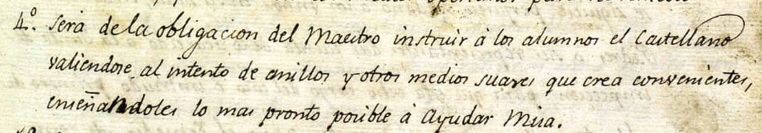 4.º Será de la obligacion del Maestro instruir à los alumnos el Castellano
valiendose al intento de anillos y otros medios suaves que crea convenientes,
enseñandoles lo mas pronto posible à Ayudar Misa.